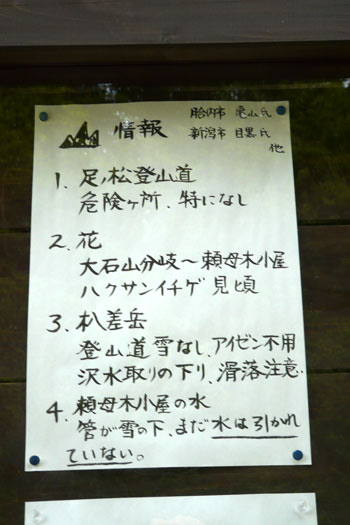 情報
胎内市 亀山氏
新潟市 目黒氏
他
1. 足ノ松登山道
危険ヶ所、特になし
2. 花
大石山分岐〜頼母木小屋
ハクサンイチゲ 見頃
3. 朳差岳
登山道雪なし、アイゼン不用
沢水取りの下り、滑落注意.
4. 頼母木小屋の水
管が雪の下、まだ水は引かれ
ていない。